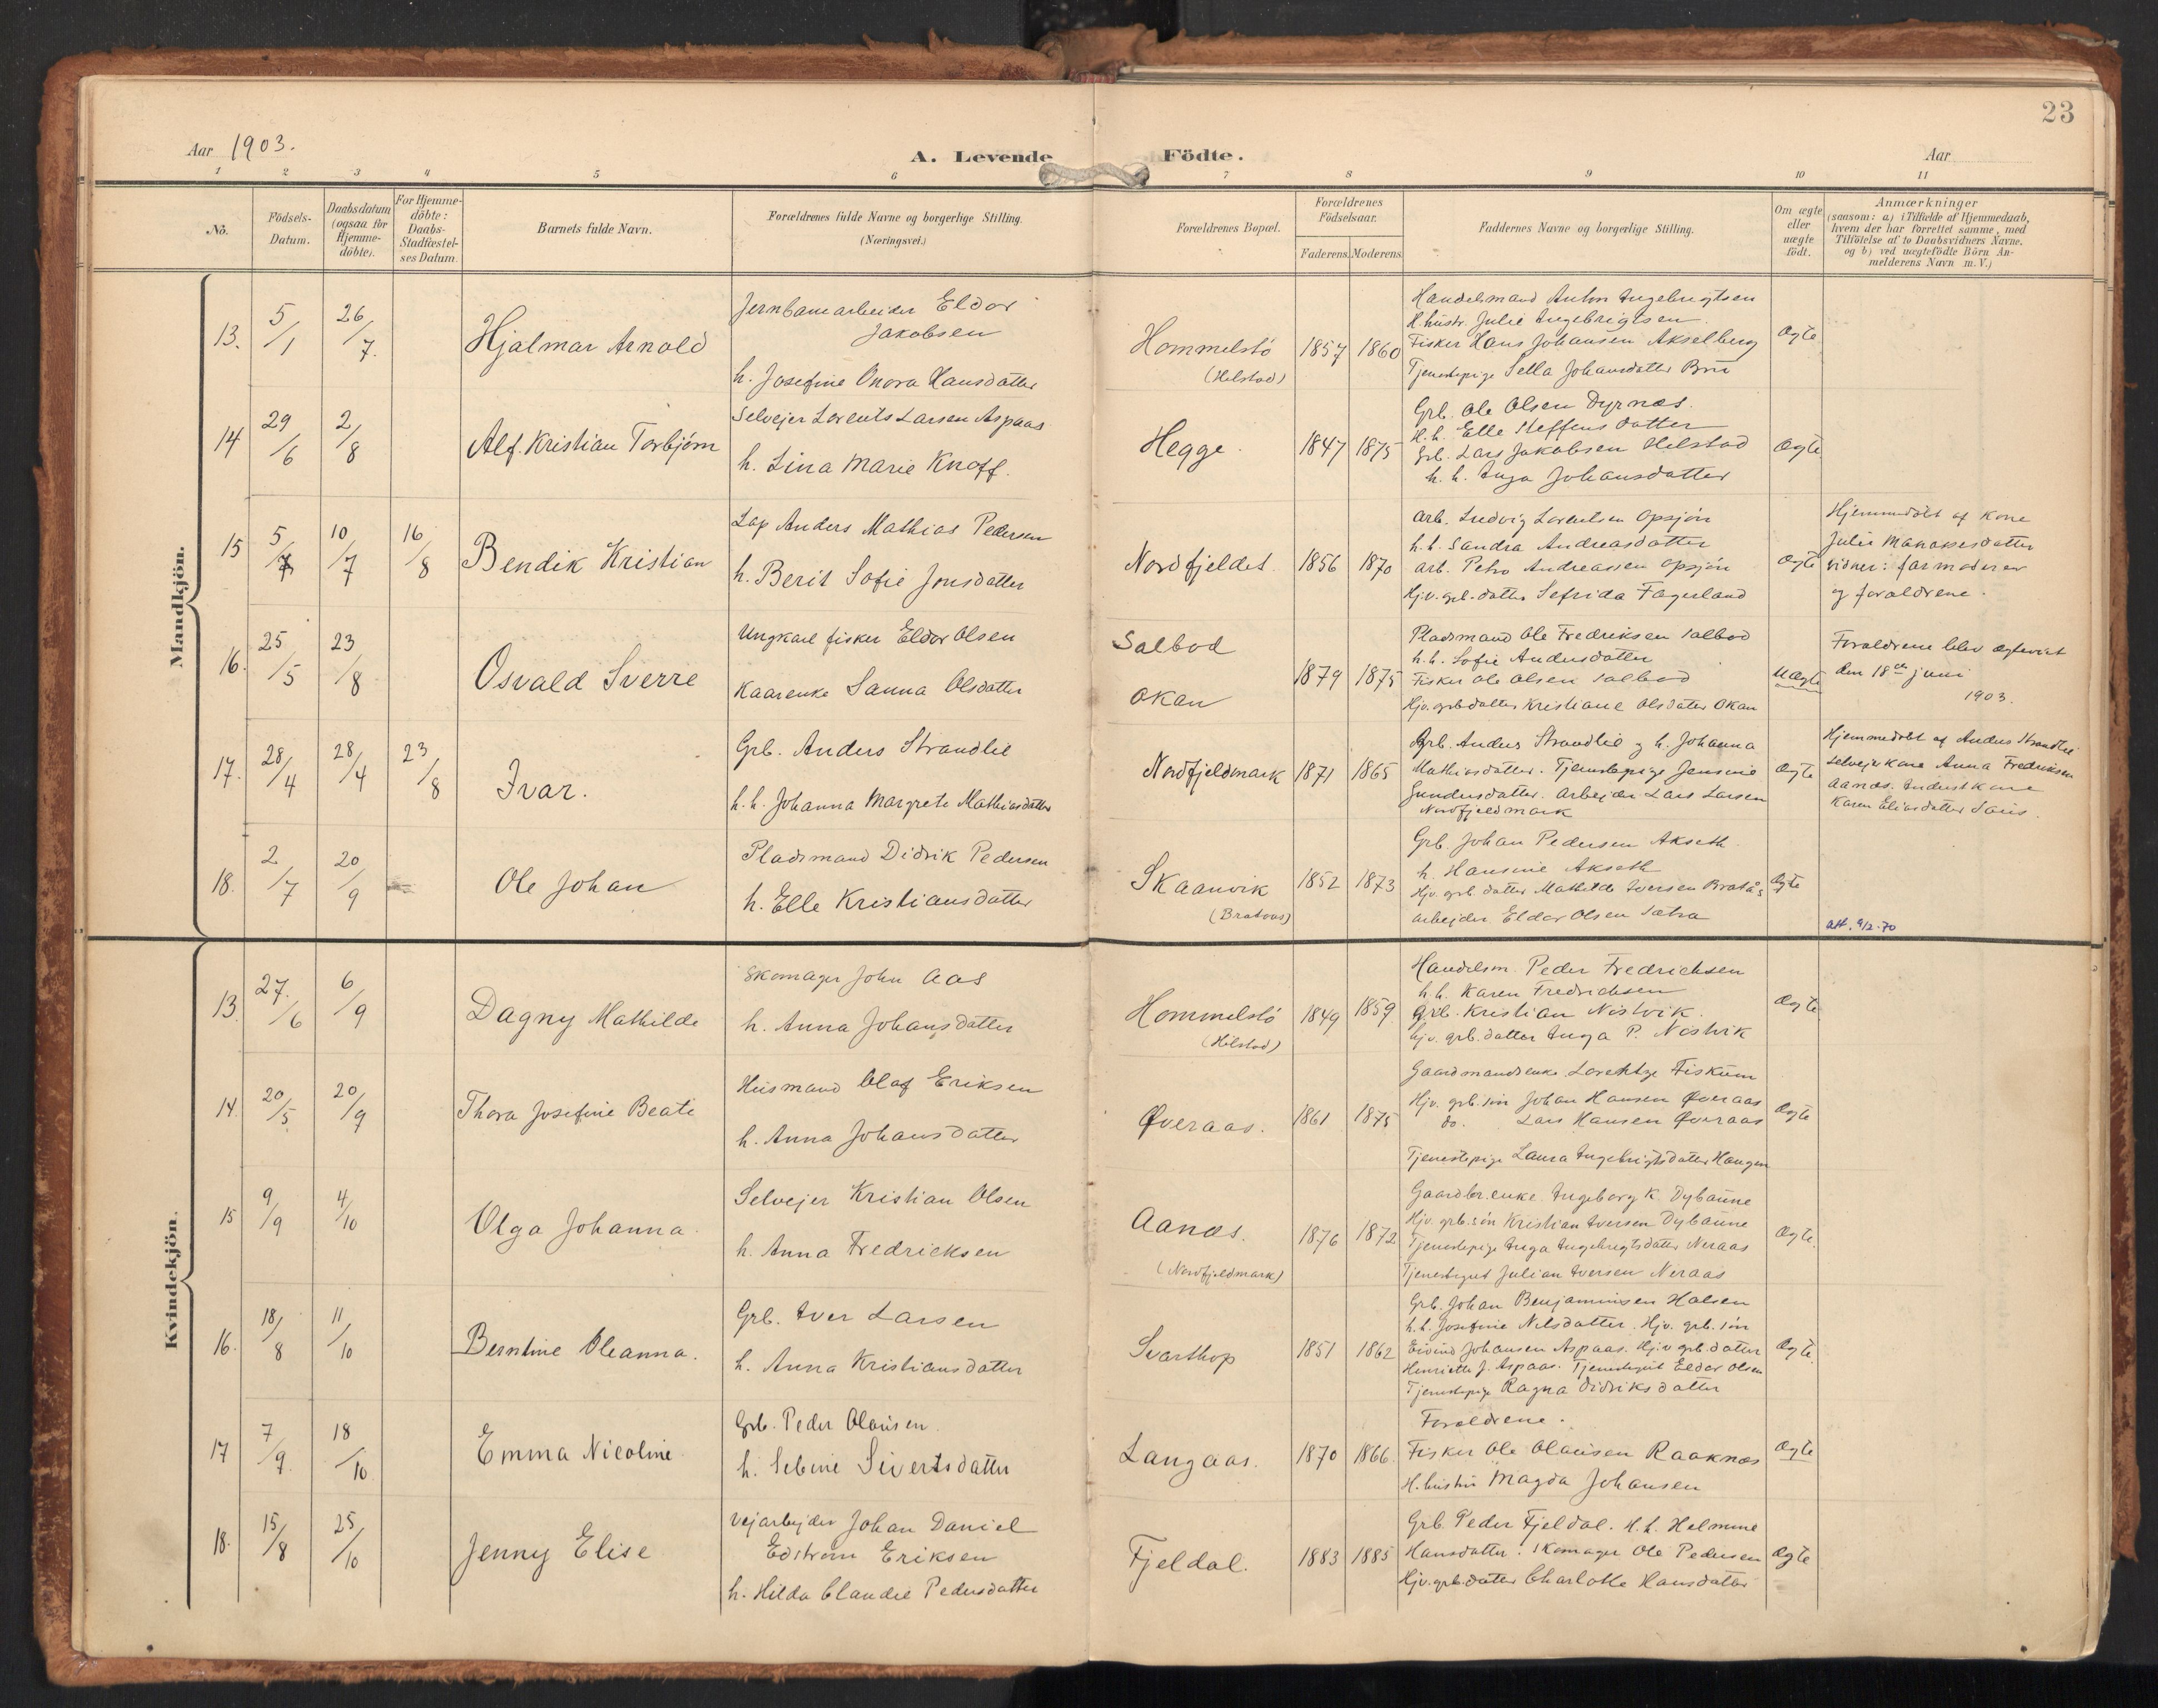 23
Aar 1903.
A. Levende Födte.
Aar
1 2 3 4 5 6 7 8 9 10 11
No.
Födsels-
Datum.
Daabsdatum
(ogsaa for
Hjemme-
döbte).
For Hjemme-
döbte:
Daabs-
Stadfæstel-
ses Datum.
Barnets fulde Navn.
Forældrenes fulde Navne og borgerlige Stilling.
(Næringsvei.)
Forældrenes Bopæl.
Forældrenes
Födselsaar.
Faderens. Moderens.
Faddernes Navne og borgerlige Stilling.
Om ægte
eller
uægte
födt.
Anmærkninger
(saasom: a) i Tilfælde af Hjemmedaab,
hvem der har forrettet samme, med
Tilföielse af to Daabsvidners Navne.
og b) ved uægtefödte Börn An-
melderens Navn m. V.)
Mandkjön.
13. 5/1 26/7.
Hjalmar Arnold
Jernbanearbeider Eldor
Jakobsen
h. Josefine Onora Hansdatter
Hommelstö
(Helstad)
1857 1860
Handelsmand Anton Ingebrigtsen
H. hustr. Julie Ingebrigtsen
Fisker Hans Johansen Akselberg
Tjenestepige Sella Johansdatter Brü
Ægte
14 29/6 2/8
Alf. Kristian Torbjörn
Selvejer Lorents Larsen Aspaas
h. Lina Marie Knoff.
Hegge.
1847 1875
Grb. Ole Olsen Dyrnæs.
H. h. Elle Steffensdatter
Grb. Lars Jakobsen Helstad
h. h. Inga Johansdatter
Ægte
15 5/7 10/7 16/8
Bendik Kristian
Lap Anders Mathias Pedersen
h. Berit Sofie Jonsdatter
Nordfjeldet.
1856 1870
Arb. Ludvig Lorentsen Opsjön
h. h. Sandra Andreasdatter
Arb. Petro Andreassen Opsjön
Hjv. grb. datter Sefrida Fagerland
Ægte
Hjemmedöbt af Kone
Julie Manassesdatter
vidner: farmoderen
og forældrene.
16. 25/5 23/8
Osvald Sverre
Ungkarl fisker Eldor Olsen
Kaarenke Sanna Olsdatter
Salbod
Okan
1879 1875
Pladsmand Ole Fredriksen Salbod
h. h. Sofie Andersdatter
Fisker Ole Olsen Salbod
Hjv. grbdatter Kristiane Olsdatter Okan
Uægte
Forældrene blev ægteviet
den 18de juni
1903.
17. 28/4 28/4 23/8
Ivar.
Grb. Anders Strandlie
h. h. Johanna Margrete Mathiasdatter
Nordfjeldmark
1871 1865
Grb. Anders Strandlie og h. Johanna
Mathiasdatter. Tjenestepige Jensine
Gundersdatter. Arbejder Lars Larsen
Nordfjeldmark
Ægte
Hjemmedöbt af Anders Strandlie
Selvejerkone Anna Fredriksen
Aanæs. Inderstkone
Karen Eliasdatter Saus.
18. 2/7 20/9
Ole Johan
Pladsmand Didrik Pedersen
h. Elle Kristiansdatter
Skaanvik
(Brataas)
1852 1873
Grb. Johan Pedersen Akseth
h. Hansine Akseth
Hjv. grb. datter Mathilde Iversen Bratås
Arbejder Eldor Olsen Sætra
Ægte
att. 9/2-70
Kvindekjön.
13. 27./6 6/9
Dagny Mathilde
Skomager John Aas
h. Anna Johansdatter
Hommelstö
(Hilstad)
1849 1859
Handelsm. Peder Fredrichsen
h. h. Karen Fredrichsen
Grb. Kristian Nöstvik.
hjv. grb. datter Inga P. Nöstvik
Ægte
14. 20/5 20/9
Thora Josefine Beate
Husmand Olaf Eriksen
h. Anna Johansdatter
Øveraas.
1861 1875
Gaardmandsenke Lorentze Fiskum
Hjv. grb. sön Johan Hansen Øveraas
do. Lars Hansen Øveraas
Tjenestepige Laura Ingebrigtsdatter Haugen
Ægte
15 9/9 4/10
Olga Johanna.
Selvejer Kristian Olsen
h. Anna Fredricksen
Aanæs.
(Nordfjeldmark)
1876 1872
Gaardbr. enke Ingeborg K. Dybaune
Hjv. grb. sön Kristian Iversen Dybaune
Tjenestepige Inga Ingebrigtsdatter Neraas
Tjenestegut Julian Iversen Neraas
Ægte.
16. 18/8 11/10
Berntine Oleanna.
Grb. Iver Larsen
h. Anna Kristiansdatter
Svarthop
1851 1862
Grb. Johan Benjaminsen Halsen
h. h. Josefine Nilsdatter. Hjv. grb. sön
Eivind Johansen Aspaas. Hjv grb. datter
Henriette J. Aspaas. Tjenestegut Eldor Olsen
Tjenestepige Ragna Didriksdatter
Ægte.
17 7/9 18/10
Emma Nicoline
Grb. Peder Olausen.
h. Sebine Sivertsdatter
Langaas.
1870 1866.
Forældrene.
Fisker Ole Olausen Raaknæs
H. hustru Magda Johansen
Ægte
18. 15/8 25/10
Jenny Elise
Vejarbejder Johan Daniel
Edstrom Eriksen
h. Hilda Claudie Pedersdatter
Fjeldal.
1883 1885
Grb. Peder Fjeldal. H. h. Helmine
Hansdatter. Skomager Ole Pedersen
Hjv. grb. datter Charlotte Hansdatter
Ægte